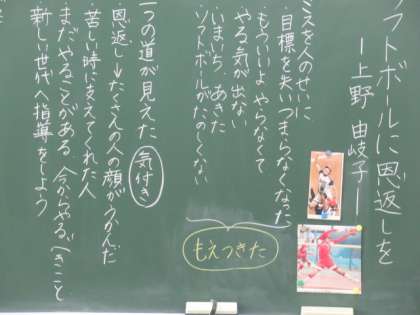 ソフトボールに恩返しを
ー上野 由岐子ー
ミスを人のせいに
・目標を失いつまらなくなった
・もういいよ やらなくて
・やる気が出ない
・いまいち、あきた
・ソフトボールがたのしくない
もえつきた
一つの道が見えた
気付き
・恩返し→たくさんの人の顔がうかんだ
・苦しい時に支えてくれた人
・まだやることがある 今からやるべきこと
新しい世代へ指導をしよう